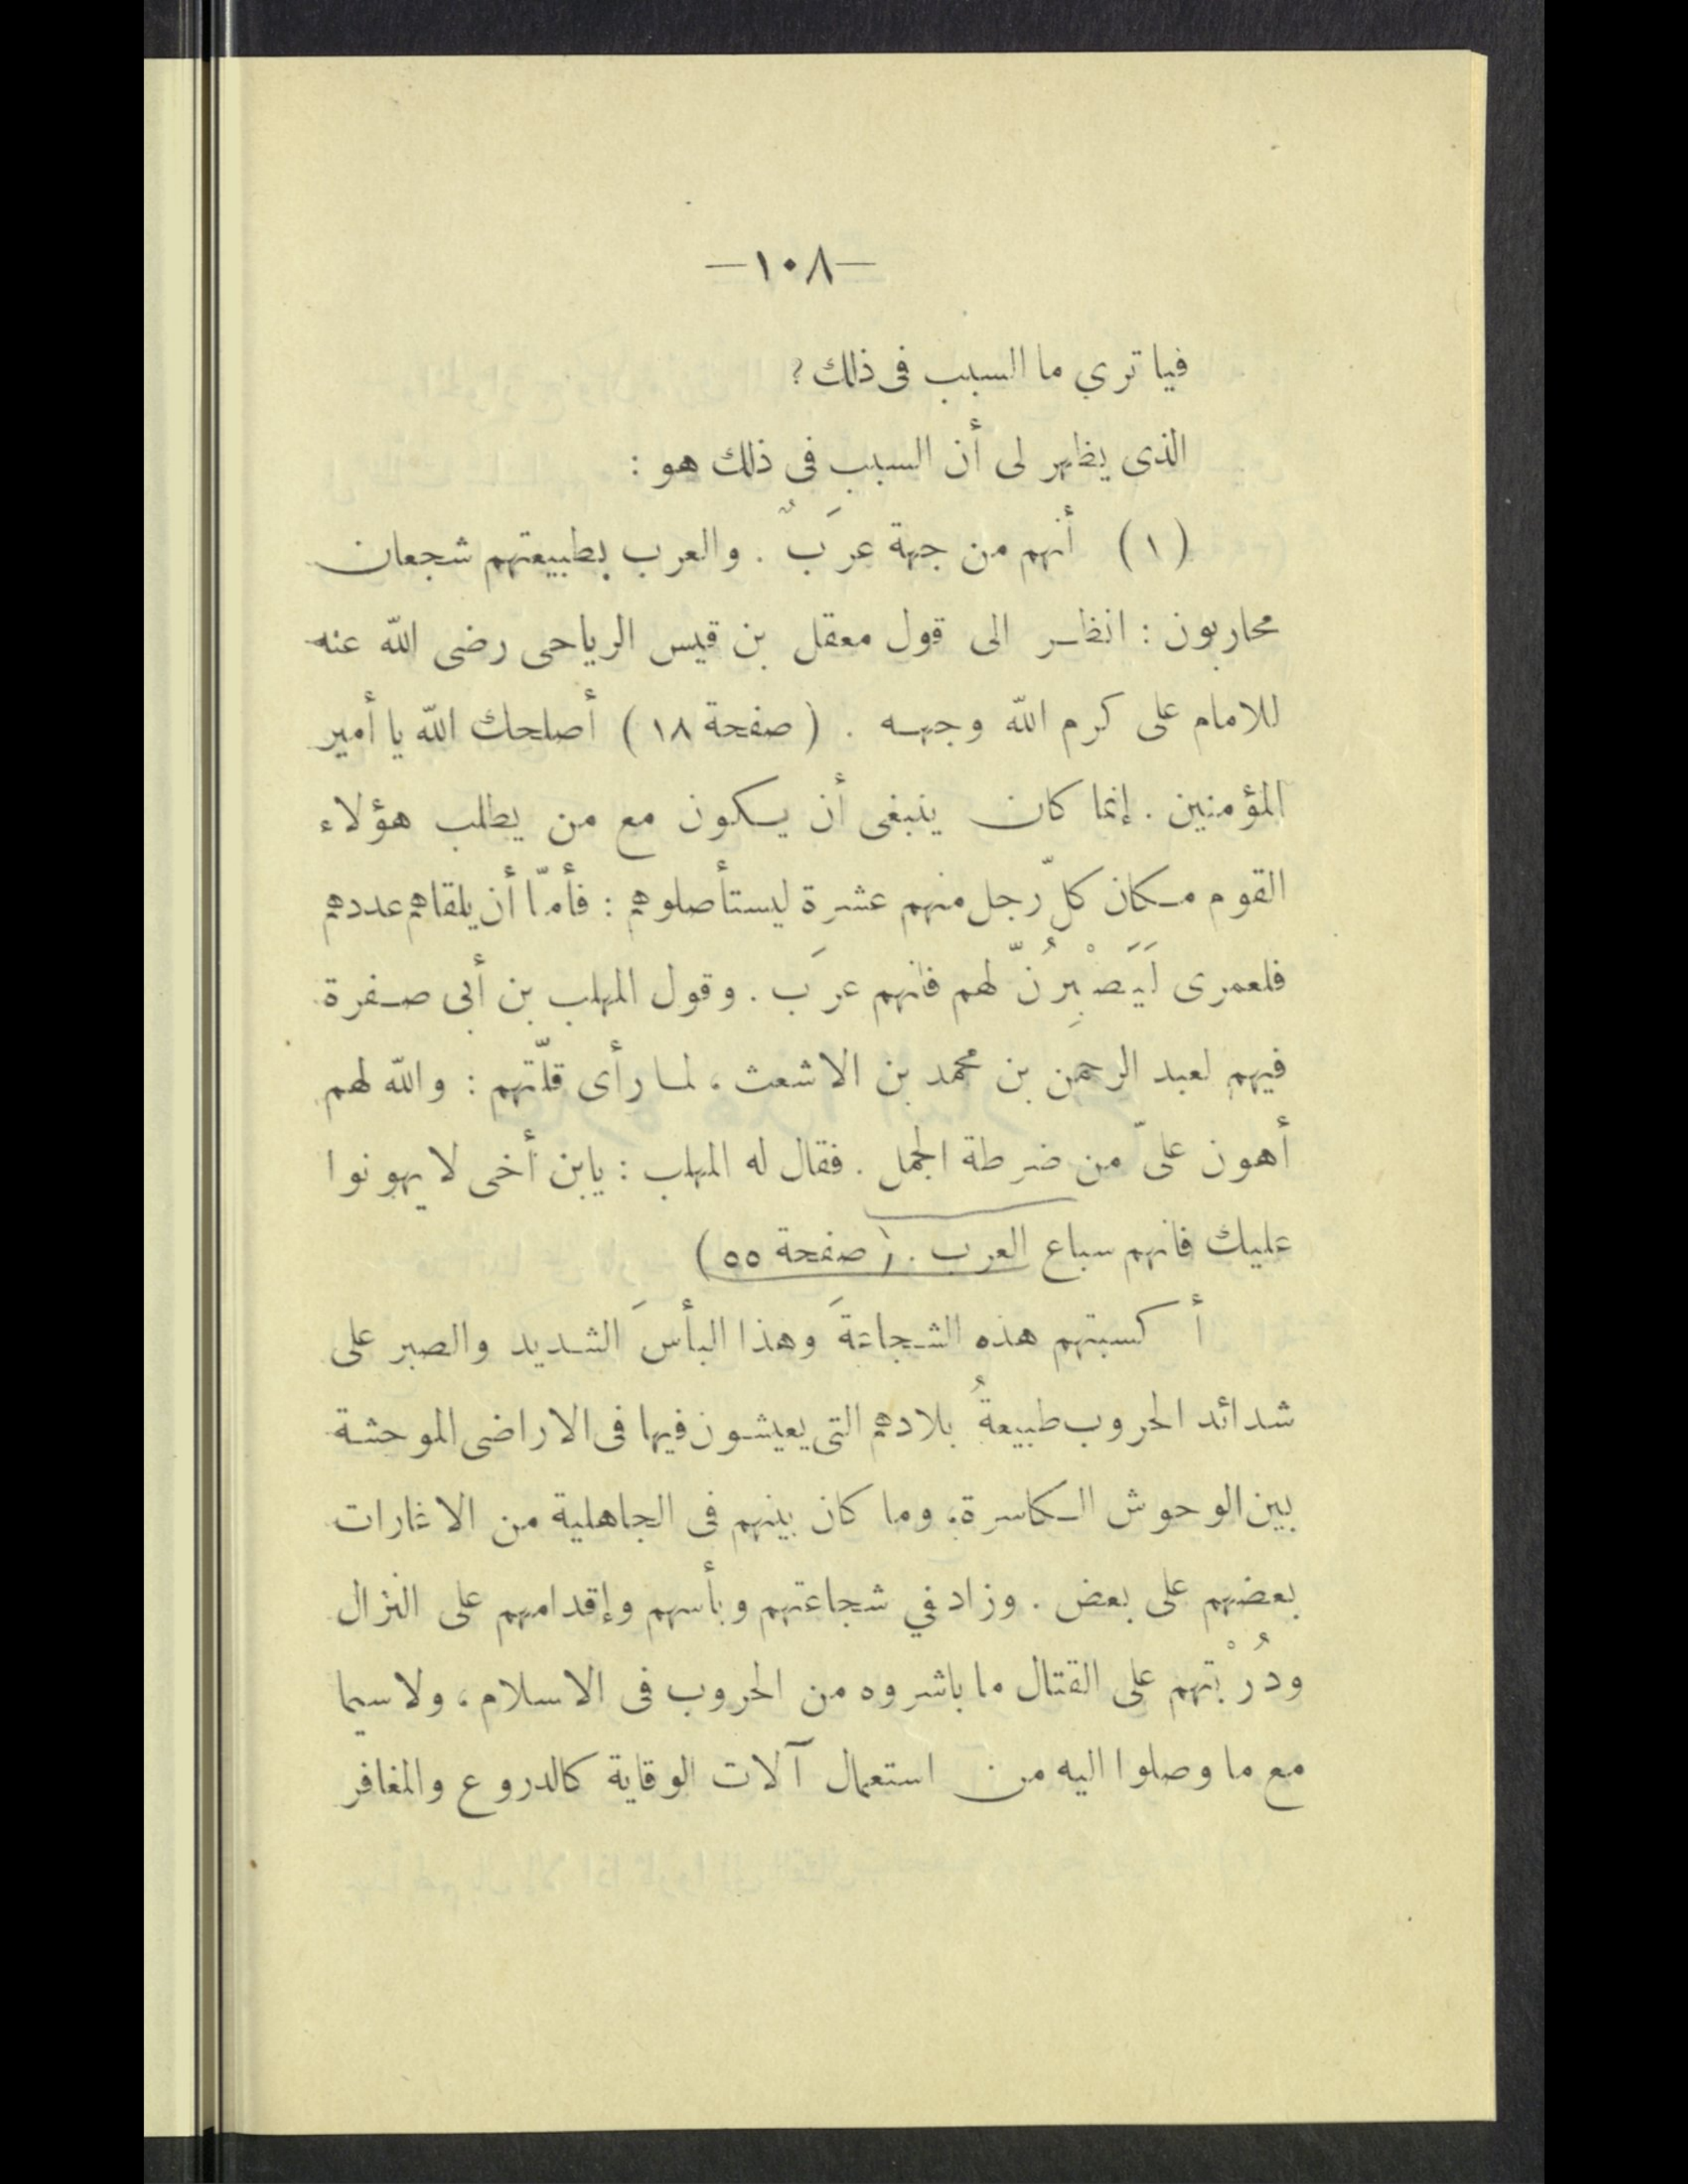 —١٠٨—
فيا ترى ما السبب فى ذلك؟
الذى يظهر لى أن السبب فى ذلك هو :
(١) أنهم من جهة عرَبٌ . والعرب بطبيعتهم شجعان
محاربون : انظر الى قول معقل بن قيس الرياحى رضى الله عنه
للامام على كرم الله وجهه . (صفحة ١٨) أصلحك الله يا أمير
المؤمنين . إنما كان ينبغى أن يكون مع من يطلب هؤلاء
القوم مكان كلّ رجل منهم عشرة ليستأصلوهم : فأمّا أن يلقاهم عددهم
فلعمرى لَيَصْبِرُنّ لهم فانهم عرَب . وقول المهلب بن أبى صفرة
فيهم لعبد الرحمن بن محمد بن الاشعث ، لما رأى قلّتهم : والله لهم
أهون علىّ من ضرطة الجمل . فقال له المهلب : يابن أخى لا يهونوا
عليك فانهم سباع العرب . (صفحة ٥٥)
أكسبتهم هذه الشجاعةَ وهذا البأسَ الشديد والصبر على
شدائد الحروب طبيعةُ بلادهم التى يعيشون فيها فى الاراضى الموحشة
بين الوحوش الكاسرة ، وما كان بينهم فى الجاهلية من الاغارات
بعضهم على بعض . وزاد في شجاعتهم وبأسهم وإقدامهم على النزال
ودُرْبتهم على القتال ما باشروه من الحروب فى الاسلام ، ولا سيما
مع ما وصلوا اليه من استعمال آلات الوقاية كالدروع والمغافر